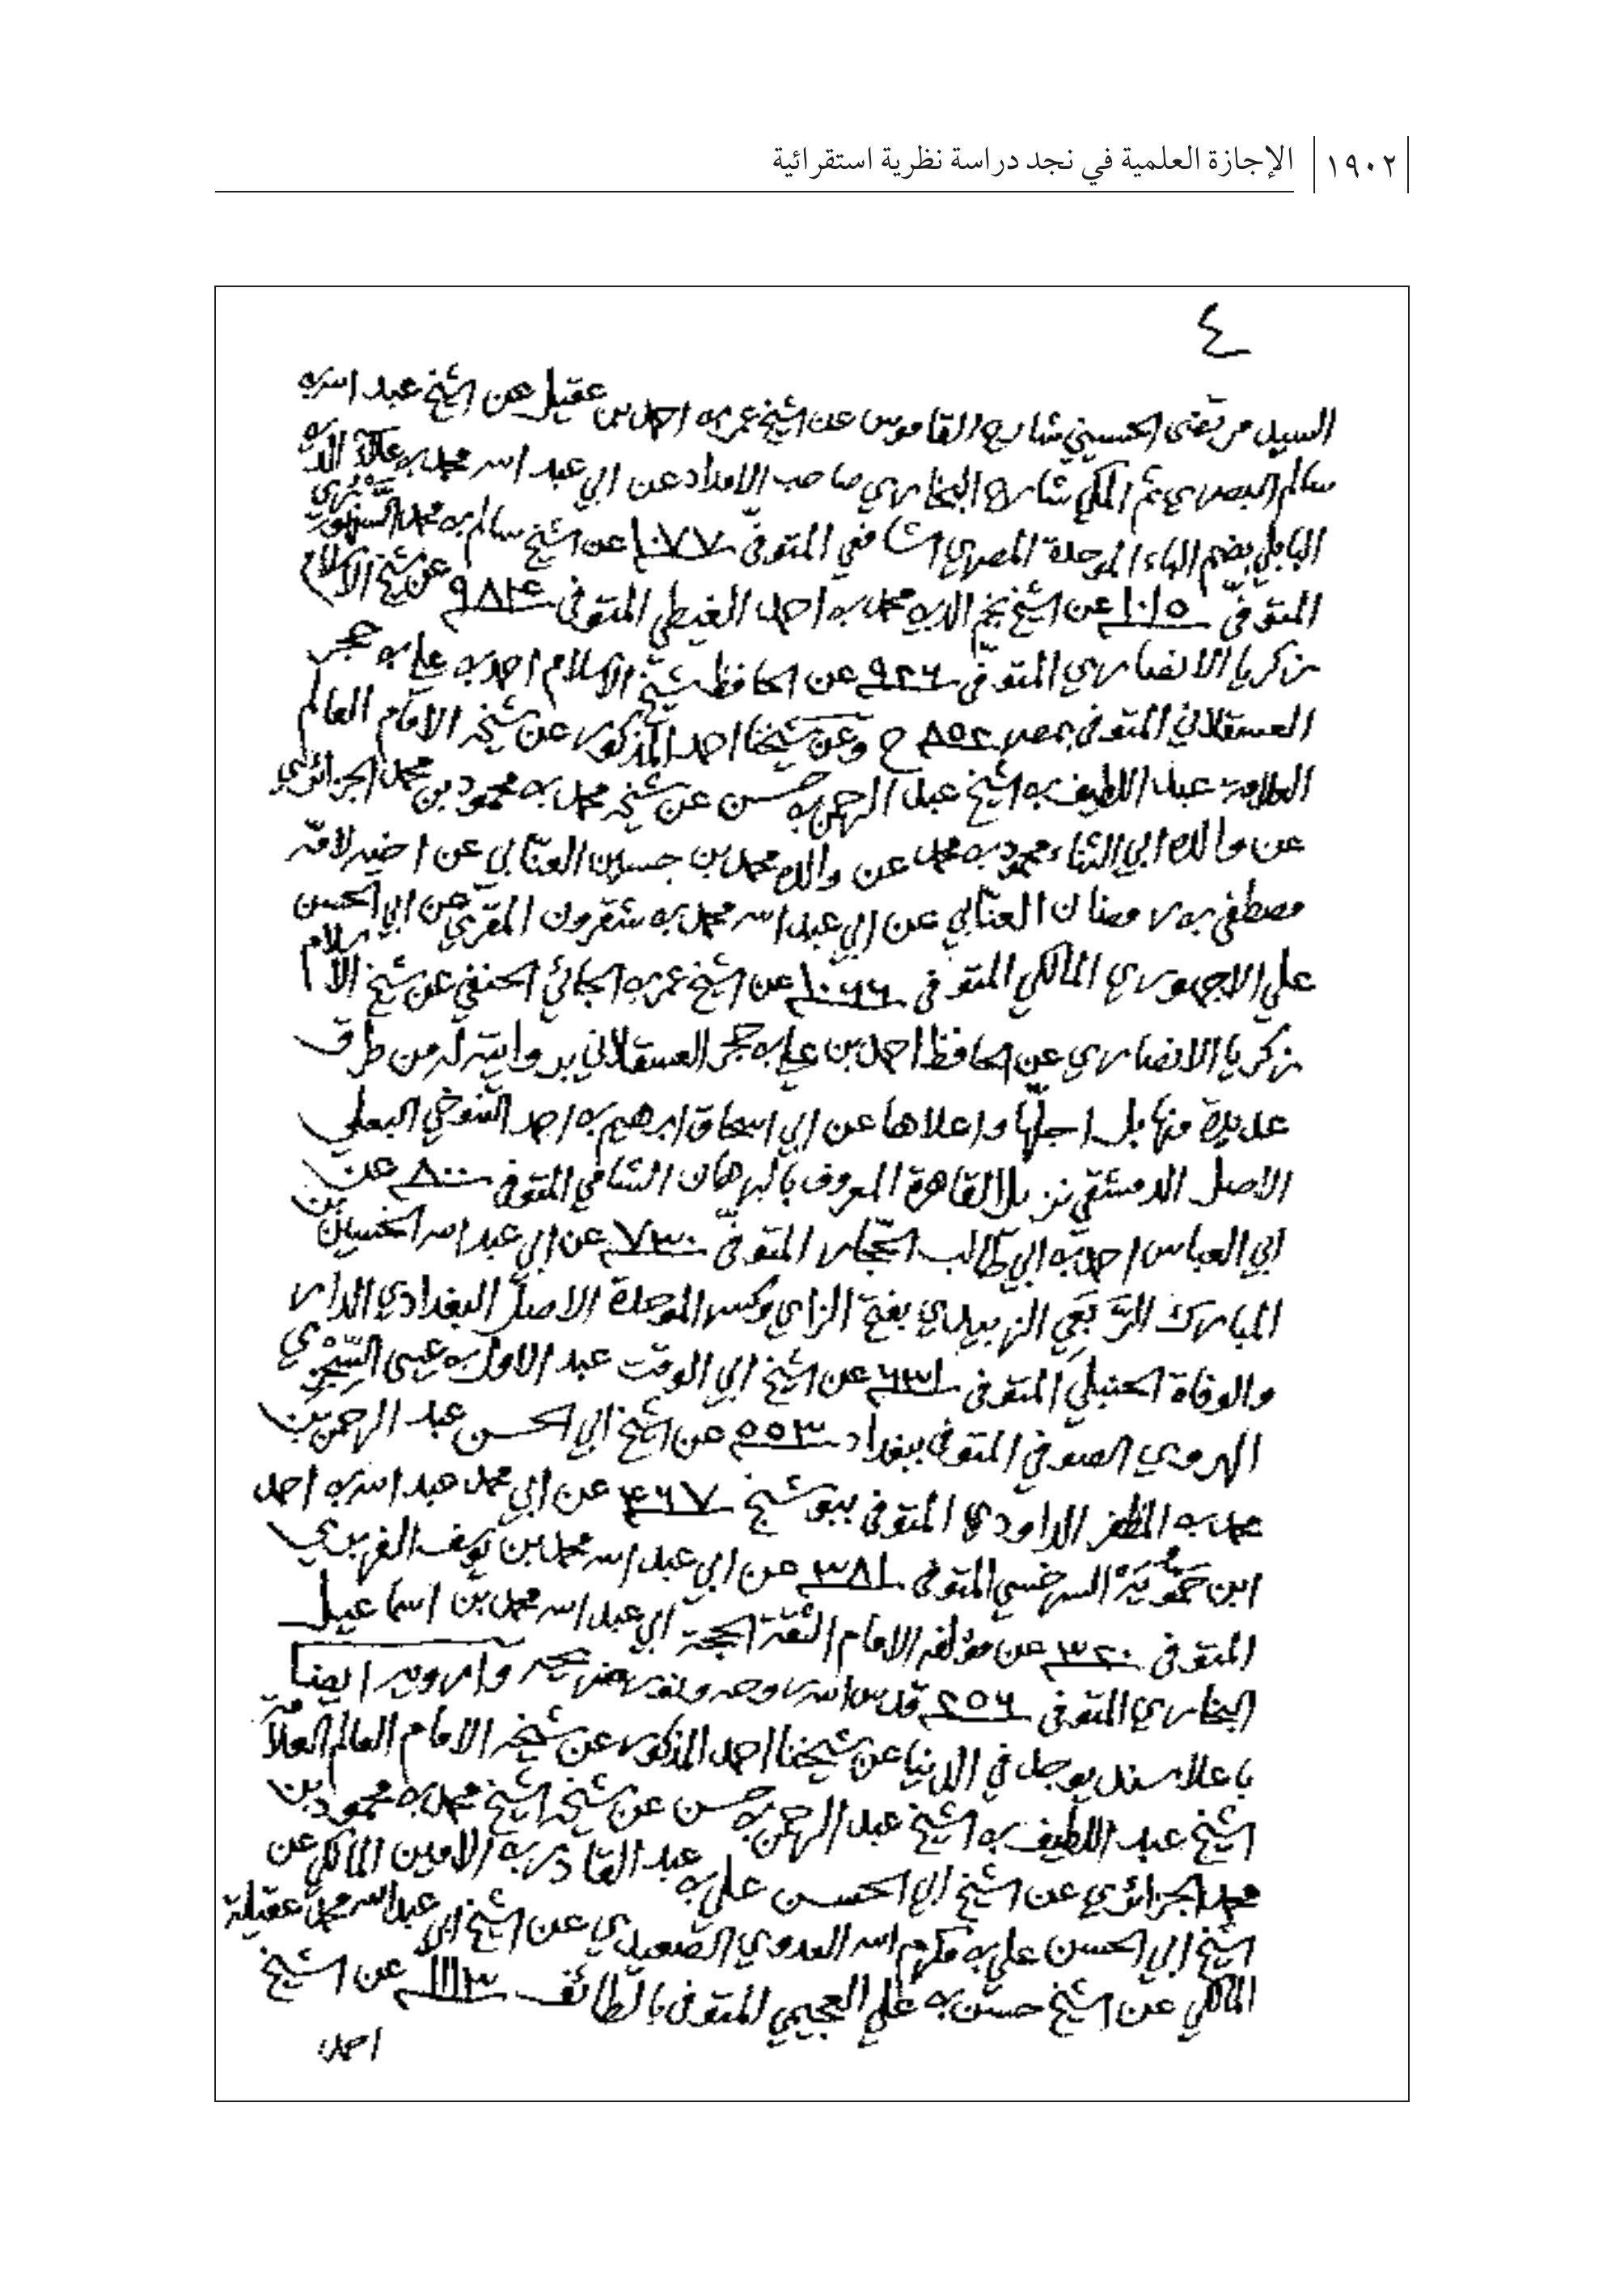 ١٩٠٢ الإجازة العلمية في نجد دراسة نظرية استقرائية
٤
السيد مرتضى الحسيني شارح القاموس عن الشيخ عمر بن احمد بن عقيل عن الشيخ عبد الله بن
سالم البصري ثم المكي شارح البخاري صاحب الامداد عن ابي عبد الله محمد بن علاء الدين
البابلي بضم الباء الموحدة المصري الشافعي المتوفى ١٠٧٧ عن الشيخ سالم بن محمد السنهوري
المتوفى ١٠١٥ عن الشيخ نجم الدين محمد بن احمد الغيطي المتوفى ٩٨٤ عن شيخ الاسلام
زكريا الانصاري المتوفى ٩٢٦ عن الحافظ شيخ الاسلام احمد بن علي بن حجر
العسقلاني المتوفى بمصر ٨٥٢ ح وعن شيخنا احمد المذكور عن شيخه الامام العالم
العلامة عبد اللطيف بن الشيخ عبد الرحمن بن حسن عن شيخه محمد بن محمود بن محمد الجزائري
عن والده ابي الثناء محمود بن محمد عن والده محمد بن حسين العنابي عن اخيه لامه
مصطفى بن رمضان العنابي عن ابي عبد الله محمد بن شقرون المقري عن ابي الحسن
علي الاجهوري المالكي المتوفى ١٠٦٦ عن الشيخ عمر بن الجائي الحنفي عن شيخ الاسلام
زكريا الانصاري عن الحافظ احمد بن علي بن حجر العسقلاني بروايته له من طرق
عديدة منها بل اجلها واعلاها عن ابي اسحاق ابرهيم بن احمد التنوخي البعلي
الاصل الدمشقي نزيل القاهرة المعروف بالبرهان الشافي المتوفى ٨٠٠ عن
ابي العباس احمد بن ابي طالب الحجار المتوفى ٧٣٠ عن ابي عبد الله الحسين بن
المبارك الربعي الزبيدي بفتح الزاي وكسر الموحدة الاصل البغدادي الدار
والوفاة الحنبلي المتوفى ٦٣١ عن الشيخ ابي الوقت عبد الاول بن عيسى السجزي
الهروي الصوفي المتوفى ببغداد ٥٥٣ عن الشيخ ابي الحسن عبد الرحمن بن
محمد بن المظفر الداودي المتوفى ببوشنج ٤٦٧ عن ابي محمد عبد الله بن احمد
ابن حمويه السرخسي المتوفى ٣٨١ عن ابي عبد الله محمد بن يوسف الفربري
المتوفى ٣٢٠ عن مؤلفه الامام الثقة الحجة ابي عبد الله محمد بن اسماعيل
البخاري المتوفى ٢٥٦ قدس الله روحه ونور ضريحه وارويه ايضا
باعلا سند يوجد في الدنيا عن شيخنا احمد المذكور عن شيخه الامام العالم العلامة
الشيخ عبد اللطيف بن الشيخ عبد الرحمن بن حسن عن شيخه الشيخ محمد بن محمود بن
محمد الجزائري عن الشيخ ابي الحسن علي بن عبد القادر بن الامين المالكي عن
الشيخ ابي الحسن علي بن مكرم الله العدوي الصعيدي عن الشيخ ابي عبد الله محمد عقيلة
المالكي عن الشيخ حسن بن علي العجيمي المتوفى بالطائف ١١١٣ عن الشيخ
احمد